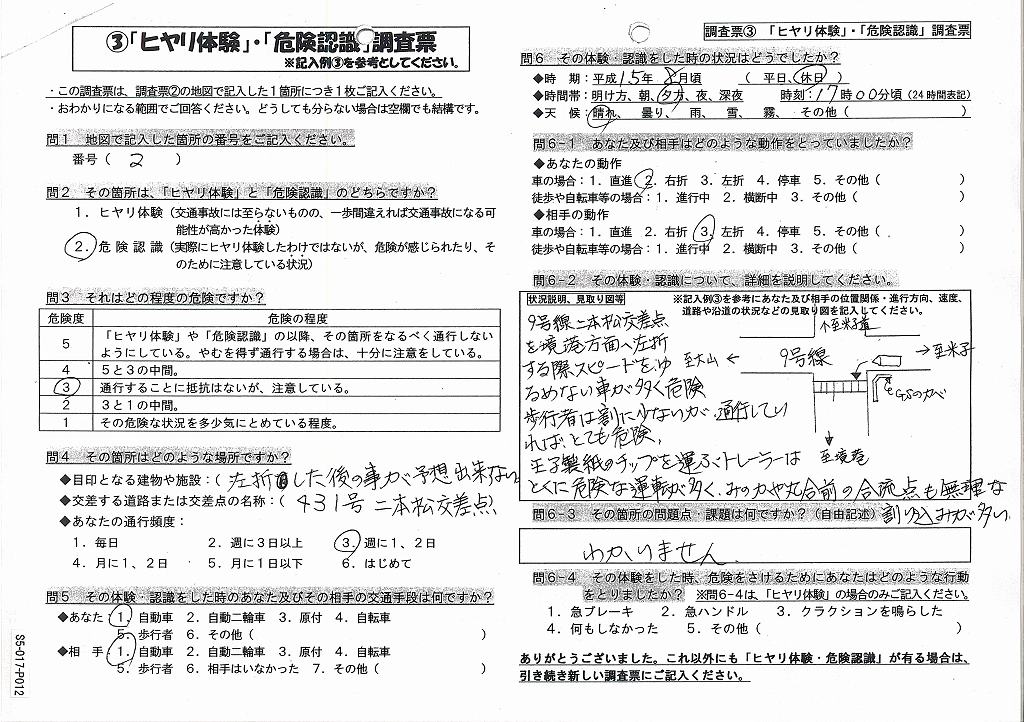 ③「ヒヤリ体験」・「危険認識」調査票
※記入例③を参考としてください。
・この調査票は、調査票②の地図で記入した1箇所につき1枚ご記入ください。
・おわかりになる範囲でご回答ください。どうしても分らない場合は空欄でも結構です。
問1 地図で記入した箇所の番号をご記入ください。
番号( 2 )
問2 その箇所は、「ヒヤリ体験」と「危険認識」のどちらですか?
1.ヒヤリ体験(交通事故には至らないものの、一歩間違えれば交通事故になる可
能性が高かった体験)
2.危険認識(実際にヒヤリ体験したわけではないが、危険が感じられたり、そ
のために注意している状況)
問3 それはどの程度の危険ですか?
危険度 危険の程度
5 「ヒヤリ体験」や「危険認識」の以降、その箇所をなるべく通行しない
ようにしている。やむを得ず通行する場合は、十分に注意をしている。
4 5と3の中間。
3 通行することに抵抗はないが、注意している。
2 3と1の中間。
1 その危険な状況を多少気にとめている程度。
問4 その箇所はどのような場所ですか?
◆目印となる建物や施設:( 左折した後の事が予想出来ない
◆交差する道路または交差点の名称:( 431号 二本松交差点
◆あなたの通行頻度:
1.毎日 2.週に3日以上 3.週に1、2日
4.月に1、2日 5.月に1日以下 6.はじめて
問5 その体験・認識をした時のあなた及びその相手の交通手段は何ですか?
◆あなた:1.自動車 2.自動二輪車 3.原付 4.自転車
5.歩行者 6.その他( )
◆相 手:1.自動車 2.自動二輪車 3.原付 4.自転車
5.歩行者 6.相手はいなかった 7.その他( )
S5-017-P012
調査票③ 「ヒヤリ体験」・「危険認識」調査票
問6 その体験・認識をした時の状況はどうでしたか?
◆時 期:平成15年 8月頃 ( 平日、休日 )
◆時間帯:明け方、朝、夕方、夜、深夜 時刻:17時00分頃(24時間表記)
◆天 候:晴れ、 曇り、 雨、 雪、 霧、 その他( )
問6-1 あなた及び相手はどのような動作をとっていましたか?
◆あなたの動作
車の場合:1.直進 2.右折 3.左折 4.停車 5.その他( )
徒歩や自転車等の場合:1.進行中 2.横断中 3.その他( )
◆相手の動作
車の場合:1.直進 2.右折 3.左折 4.停車 5.その他( )
徒歩や自転車等の場合:1.進行中 2.横断中 3.その他( )
問6-2 その体験・認識について、詳細を説明してください。
状況説明、見取り図等 ※記入例③を参考にあなた及び相手の位置関係・進行方向、速度、
道路や沿道の状況などの見取り図を記入してください。
9号線二本松交差点
を境港方面へ左折
する際スピードをゆ
るめない車が多く危険
歩行者は割に少ないが、通行してい
れば、とても危険、
王子製紙のチップを運ぶトレーラーは
とくに危険な運転が多く、みのかや丸合前の合流点も無理な
割り込みが多い
至大山 ←
9号線
→至米子
至境港
問6-3 その箇所の問題点・課題は何ですか?(自由記述)
わかりません
問6-4 その体験をした時、危険をさけるためにあなたはどのような行動
をとりましたか? ※問6-4は、「ヒヤリ体験」の場合のみご記入ください。
1.急ブレーキ 2.急ハンドル 3.クラクションを鳴らした
4.何もしなかった 5.その他( )
ありがとうございました。これ以外にも「ヒヤリ体験・危険認識」が有る場合は、
引き続き新しい調査票にご記入ください。